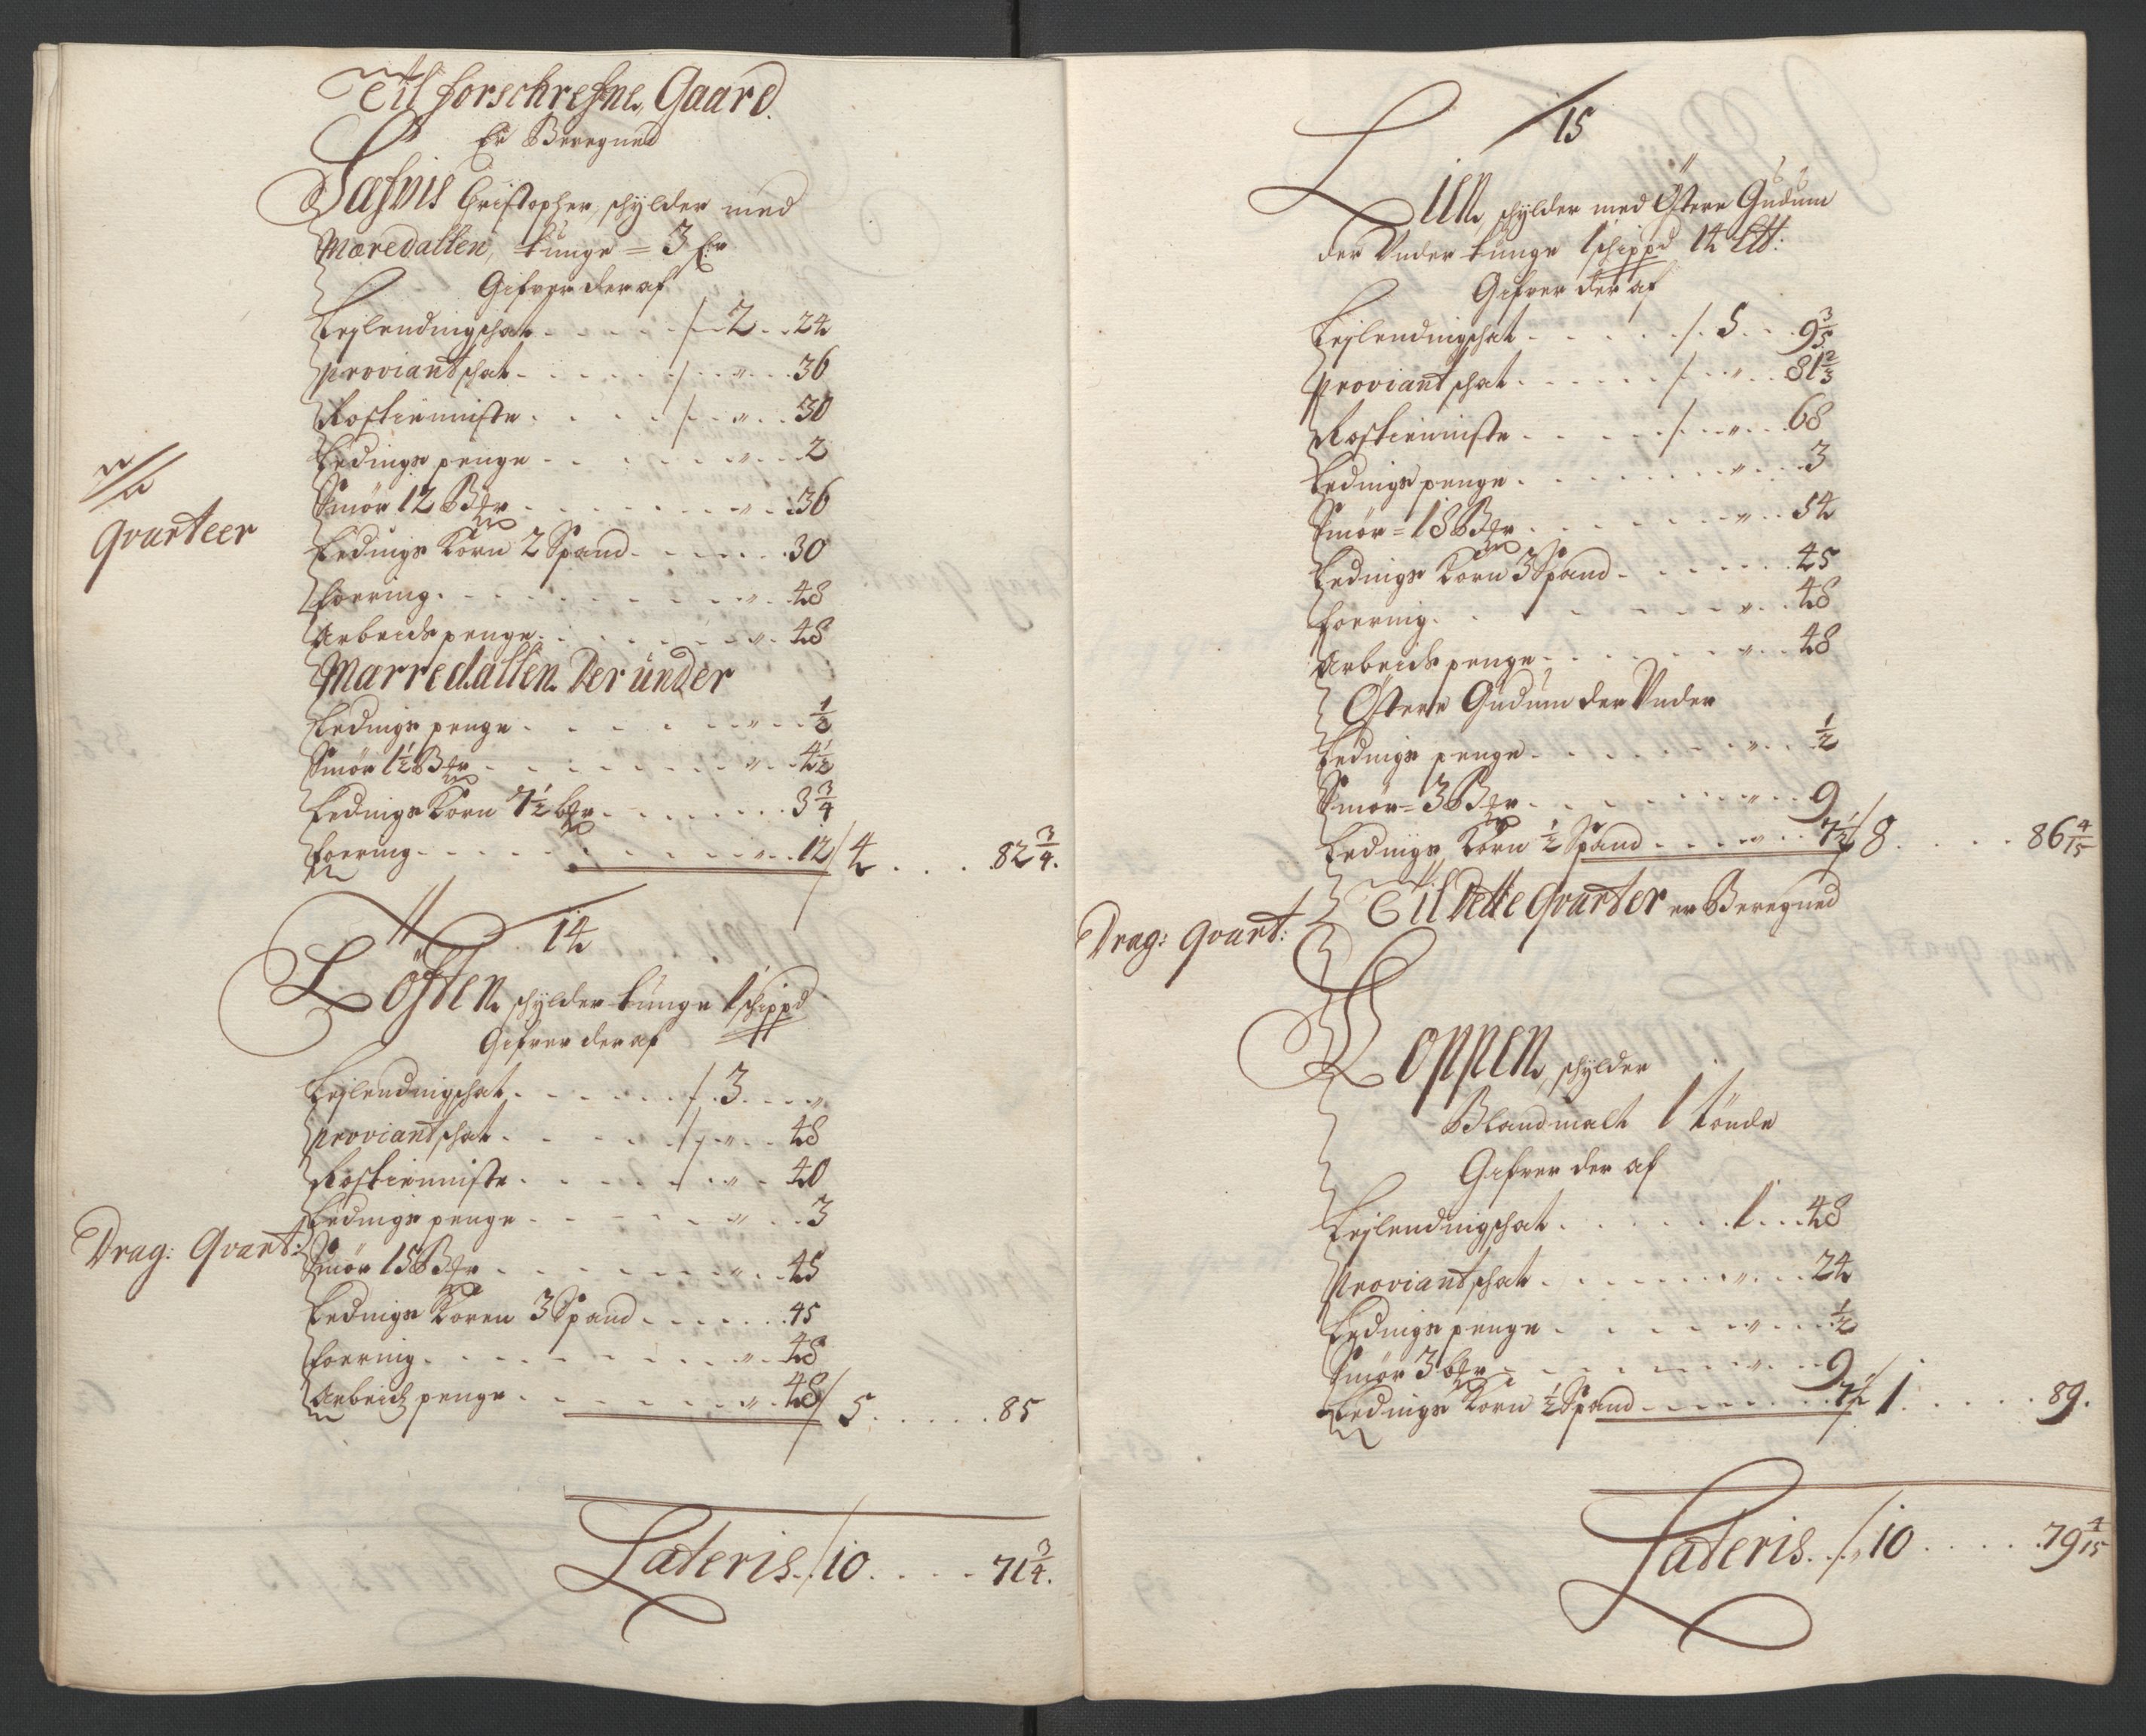 Til forschrefne Gaard
Er Beregned
Safvis Christopher, schylder med
Mæredallen, tunge = 3 Er
Gifver der af
Leÿlendingschat - - - - / - 2 - - 24
Proviantschat - - - - - / - - " - - 36
Rostienniste - - - - / - - " - - 30
Ledings penge - - - - - " - - 2
Smör 12 Bgr - - - - - " - - 36
Ledings Korn 2 Spand - - - - - 30
foering - - - - - - " - - 48
Arbeids penge - - - - - " - - 48
Marredallen Der under
Ledings penge - - - - - " - - ½
Smör 1½ Bgr - - - - - " - - 4½
Ledings Korn 7½ bgr - - - - - 3¾
foering - - - - - " - - 12 / 4 . . . . 82¾.
Qvarteer
14
Löften, schylder tunge 1 schippd
Gifver der af
Leÿlendingschat - - - - - / - 3 - - - "
Proviantschat - - - - - / - - " - - 48
Rostienniste - - - - - / - - " - - 40
Ledings penge - - - - - " - - 3
Drag: Qvart:
Smör 15 Bgr - - - - - " - - 45
Ledings Koren 3 Spand - - - - - 45
foering - - - - - - " - - 48
Arbeids penge - - - - - " - - 48 / 5 . . . . . 85
Lateris - / 10 . . . . 71¾.
15
Lien, schylder med Östere Gudum
der Under tunge 1 schippd 14 ltt:
Gifver der af
Leÿlendingschat - - - - - / . 5 - - - 9 3/5
Proviantschat - - - - - / - - " - - 81 2/3
Rostienniste - - - - - / - - " - - 68
Ledings penge - - - - - " - - 3
Smör = 18 Bgr - - - - - " - - 54
Ledings Korn 3 Spand - - - - - 45
foering - - - - - - " - - 48
Arbeids penge - - - - - " - - 48
Östere Gudum der Under
Ledings penge - - - - - " - - ½
Smör = 3 Bgr - - - - - " - - 9
Ledings Korn ½ Spand - - - - " - - 7½ / 8 . . . . 86 4/15
Til Dette Qvarter er Beregned
Drag: Qvart:
Koppen, schylder
Blandmalt 1 tönde
Gifver der af
Leÿlendingschat - - - - - 1 - - - 48
Proviantschat - - - - - " - - 24
Ledings penge - - - - - " - - ½
Smör 3 bgr - - - - - " - - 9
Ledings Korn ½ Spand - - - - - 7½ / 1 . . . . . 89.
Lateris - / 10 . . . . . 79 4/15